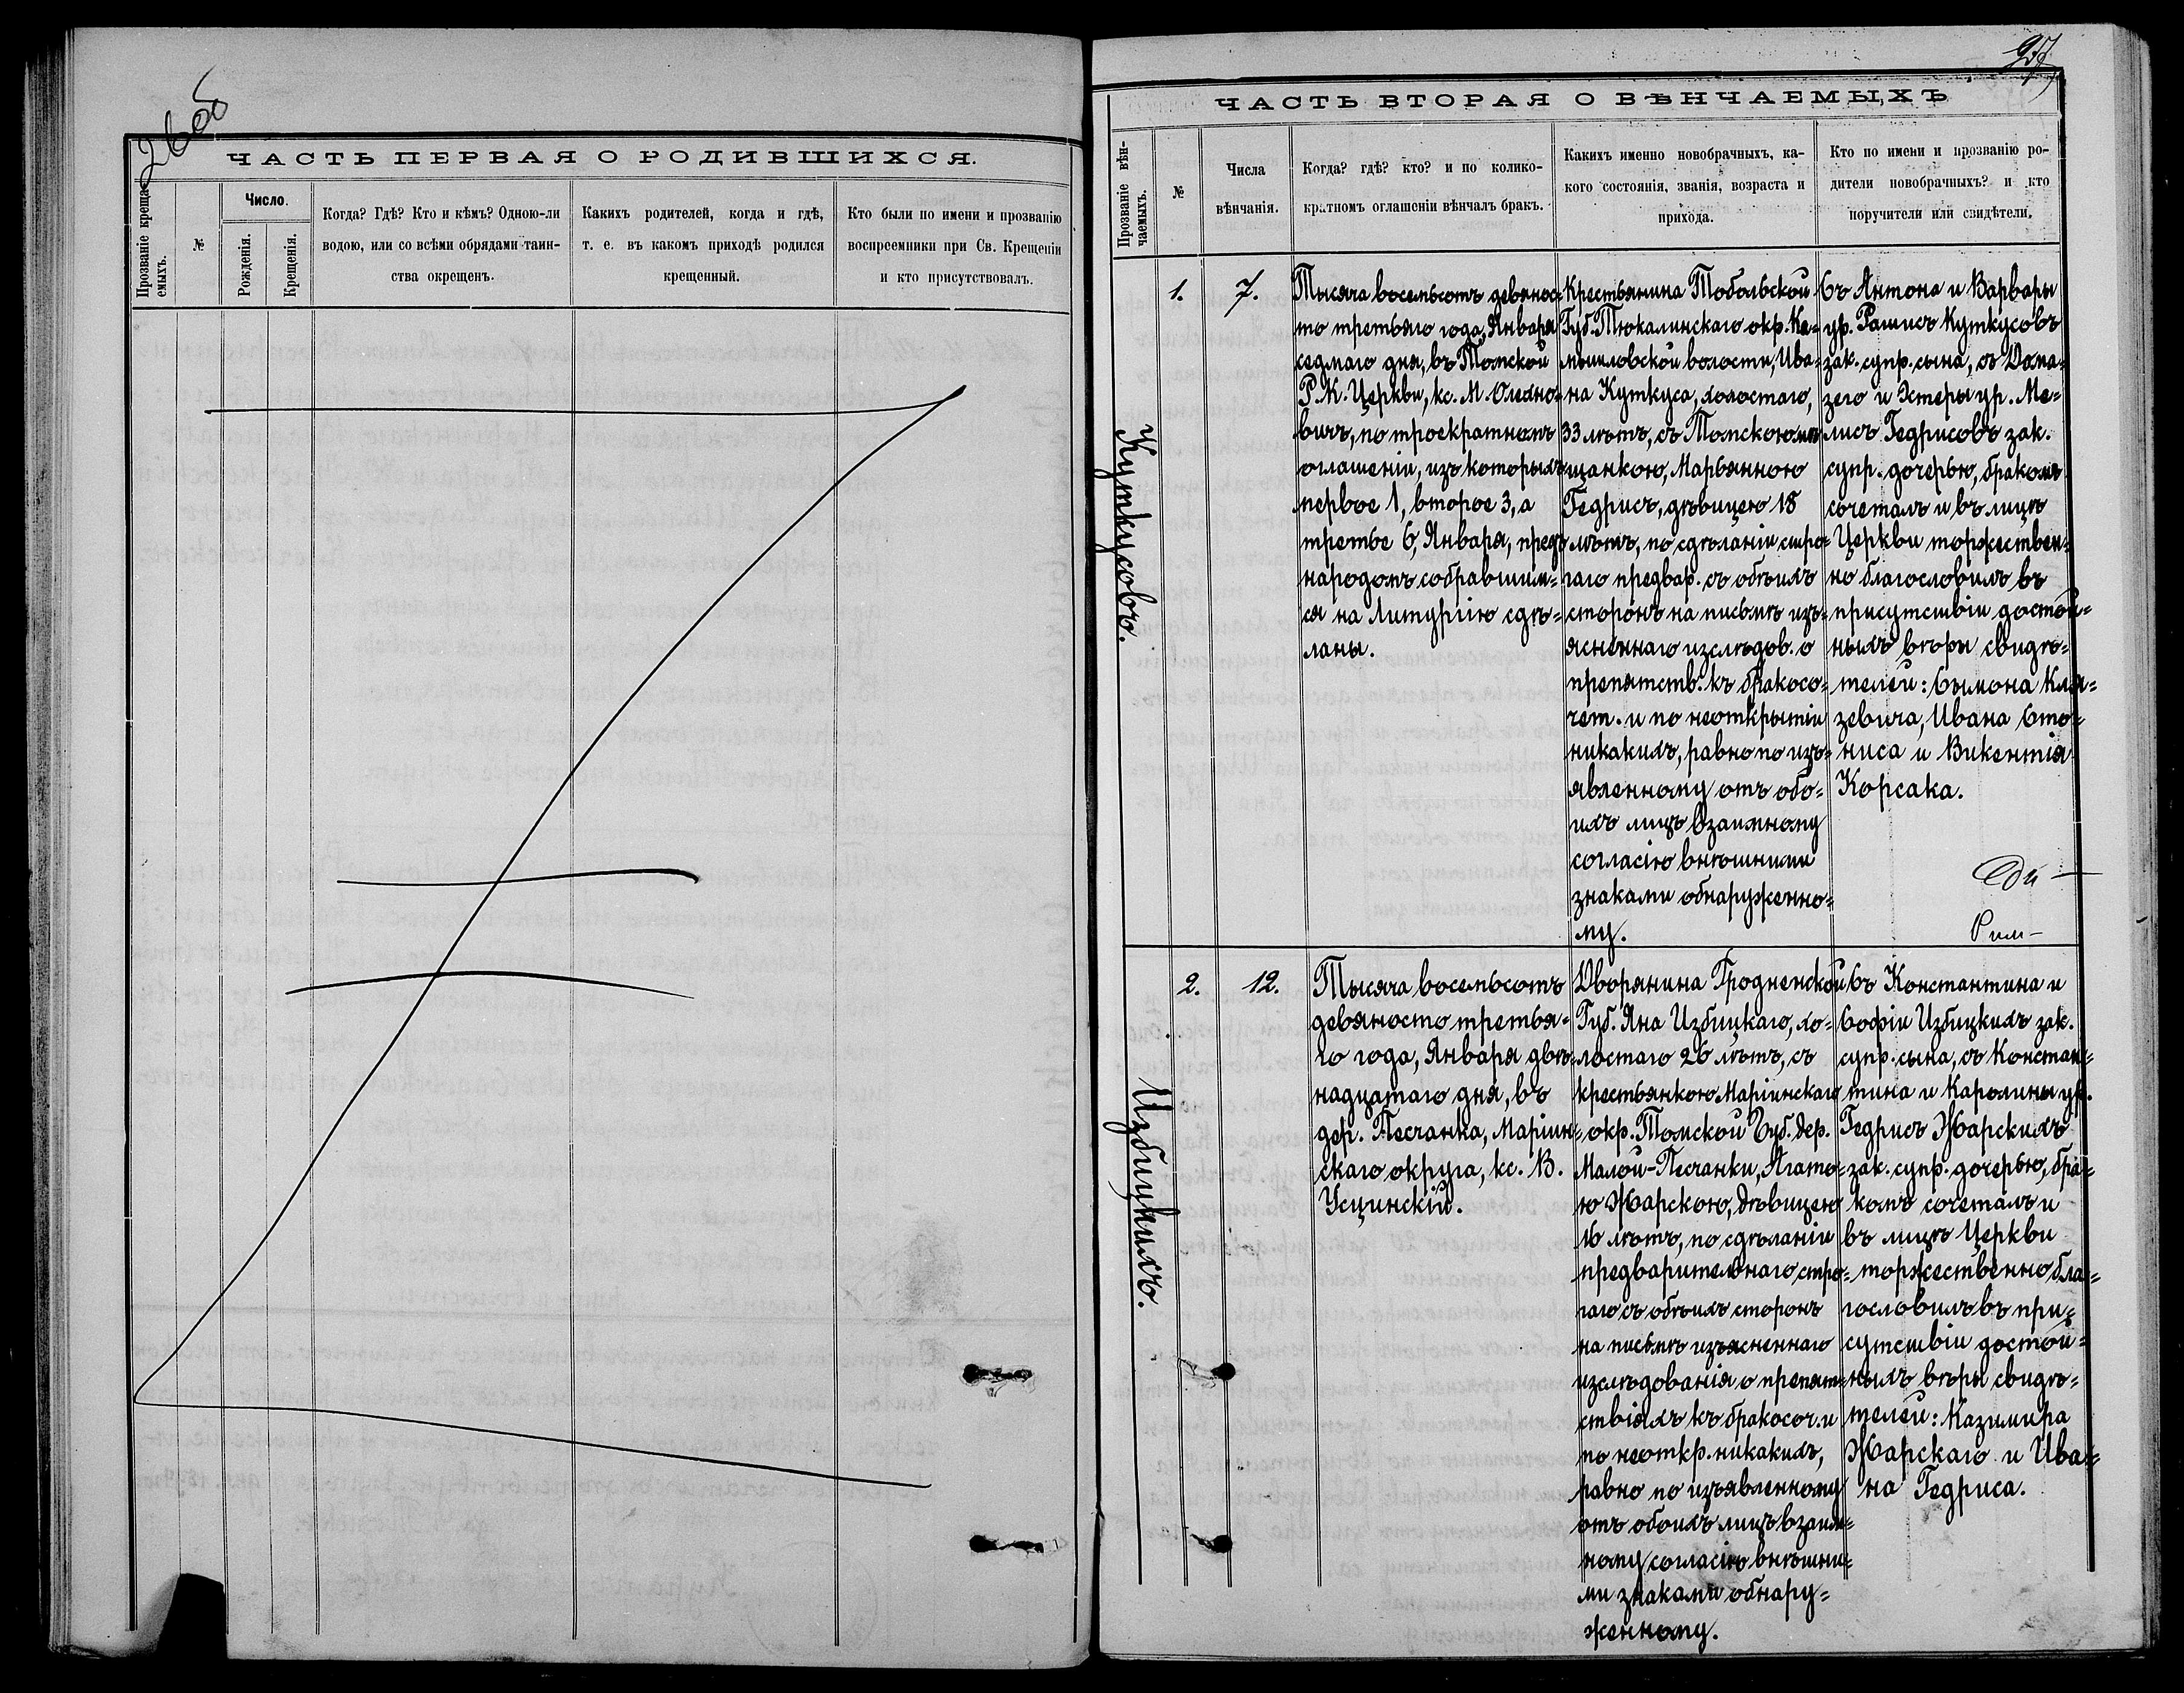 26 об
ЧАСТЬ ПЕРВАЯ О РОДИВШИХСЯ.
Прозваніе крещаемыхъ.
№
Число.
Рожденія.
Крещенія.
Когда? Гдѣ? Кто и кѣмъ? Одною-ли
водою, или со всѣми обрядами таин-
ства окрещенъ.
Какихъ родителей, когда и гдѣ,
т. е. въ какомъ приходѣ родился
крещенный.
Кто были по имени и прозванію
воспреемники при Св. Крещеніи
и кто присутствовалъ.
27
ЧАСТЬ ВТОРАЯ О ВѢНЧАЕМЫХЪ
Прозваніе вѣн-
чаемыхъ.
№
Числа
вѣнчанія.
Когда? гдѣ? кто? и по колико-
кратномъ оглашеніи вѣнчалъ бракъ.
Какихъ именно новобрачныхъ, ка-
кого состоянія, званія, возраста и
прихода.
Кто по имени и прозванію ро-
дители новобрачныхъ? и кто
поручители или свидѣтели.
Куткусовъ.
1.
7.
Тысяча восемьсотъ девянос-
то третьяго года, Января
седмаго дня, въ Томской
Р. К. Церкви, кс. М. Олехно-
вичъ, по троекратномъ
оглашеніи, изъ которыхъ
первое 1, второе 3, а
третье 6, Января, предъ
народомъ собравшим=
ся на Литургію сдѣ=
ланы.
Крестьянина Тобольской
Губ. Тюкалинскаго окр. Ка-
мышловской волости, Ива-
на Куткуса, холостаго,
33 лѣтъ, съ Томскою мѣ-
щанкою, Марьянною
Гедрисъ, дѣвицею 18
лѣтъ, по сдѣланіи стро-
гаго предвар. съ обѣихъ
сторонъ на письмѣ изъ-
ясненнаго изслѣдов. о
препятств. къ бракосо-
чет. и по неоткрытіи
никакихъ, равно по изъ-
явленному отъ обо-
ихъ лицъ взаимному
согласію внѣшними
знаками обнаруженно-
му.
Съ Антона и Варвары
ур. Рашисъ Куткусовъ
зак. супр. сына, съ Дома-
зего и Эстеры ур. Ме-
лисъ Гедрисовъ зак.
супр. дочерью, бракомъ
сочеталъ и въ лицѣ
Церкви торжествен-
но благословилъ въ
присутствіи достой=
ныхъ вѣры свидѣ=
телей: Сымона Кля=
зевича, Ивана Сто=
ниса и Викентія
Корсака.
Избицкихъ.
2.
12.
Тысяча восемьсотъ
девяносто третья-
го года, Января двѣ-
надцатаго дня, въ
дер. Песчанка, Маріин=
скаго округа, кс. В.
Усцинскій.
Дворянина Гродненской
Губ. Яна Избицкаго, хо-
лостаго 26 лѣтъ, съ
крестьянкою Маріинскаго
окр. Томской Губ. дер.
Малой-Песчанки, Агато-
ю Жарскою, дѣвицею
16 лѣтъ, по сдѣланіи
предварительнаго, стро-
гаго съ обѣихъ сторонъ
на письмѣ изъясненнаго
изслѣдованія о препят-
ствіяхъ къ бракосоч. и
по неоткр. никакихъ,
равно по изъявленному
отъ обоихъ лицъ взаим=
ному согласію внѣшни=
ми знаками обнару=
женному.
Съ Константина и
Софіи Избицкихъ зак.
супр. сына, съ Констан=
тина и Каролины ур.
Гедрисъ Жарскихъ
зак. супр. дочерью, бра=
комъ сочеталъ и
въ лицѣ Церкви
торжественно бла=
гословилъ въ при=
сутствіи достой=
ныхъ вѣры свидѣ=
телей: Казимира
Жарскаго и Ива=
на Гедриса.